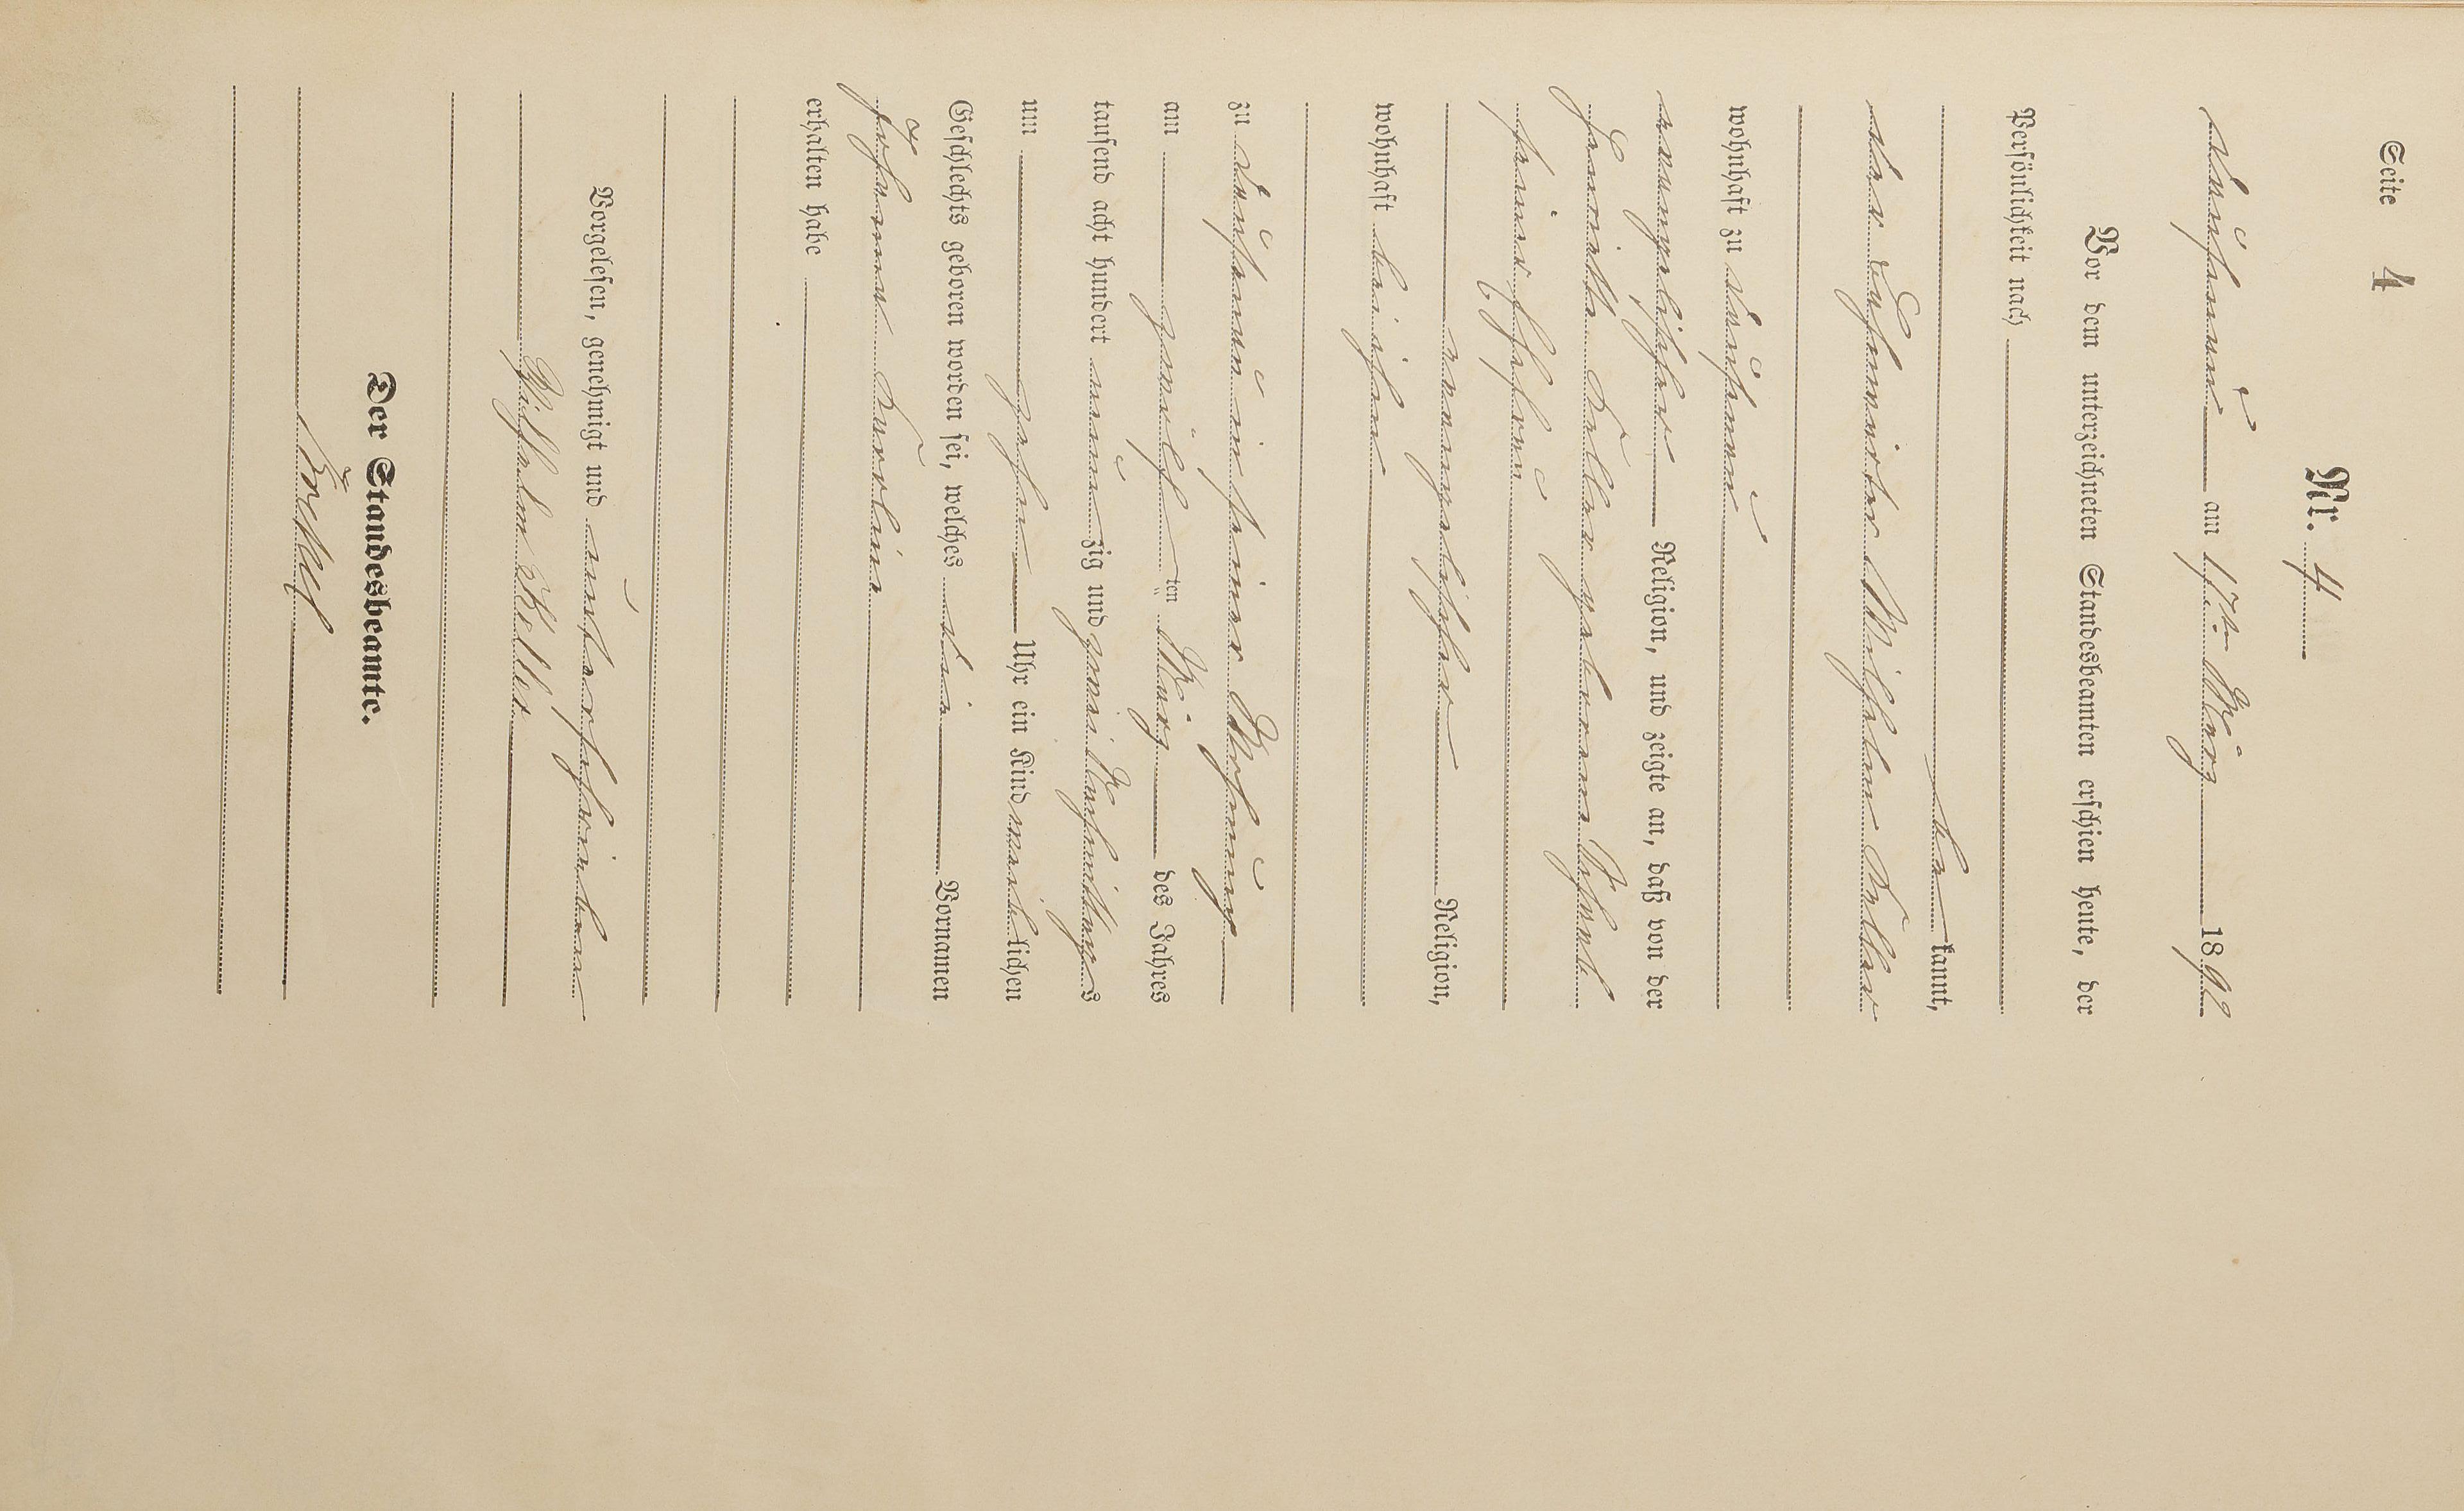 Seite 4
Nr. 4
Dausenau am 17ten März 1892
Vor dem unterzeichneten Standesbeamten erschien heute, der
Persönlichkeit nach
be kannt,
der Wilhelm Keller
wohnhaft zu Dausenau
evangelischer Religion, und zeigte an, daß von der
Henriette Keller geborenen
seiner Ehefrau
evangelischer Religion,
wohnhaft bei ihm
zu Dausenau in seiner Wohnung
am zwölf ten März des Jahres
tausend acht hundert neun zig und zwei Nachmittags
um zehn Uhr ein Kind weiblichen
Geschlechts geboren worden sei, welches die Vornamen
Johanna Karoline
erhalten habe
Vorgelesen, genehmigt und unterschrieben
Wilhelm Keller
Der Standesbeamte.